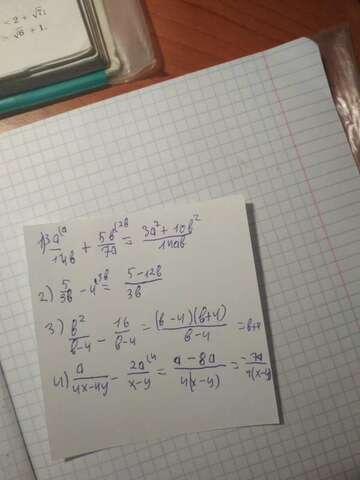 < 2 + √7;
> √6 + 1.
1) 3a^(a / 14b + 5b^(2b / 7a = 3a² + 10b² / 14ab
2) 5 / 3b - 4^(3b = 5 - 12b / 3b
3) b² / b-4 - 16 / b-4 = (b-4)(b+4) / b-4 = b+4
4) a / 4x-4y - 2a^(4 / x-y = a - 8a / 4(x-y) = -7a / 4(x-y